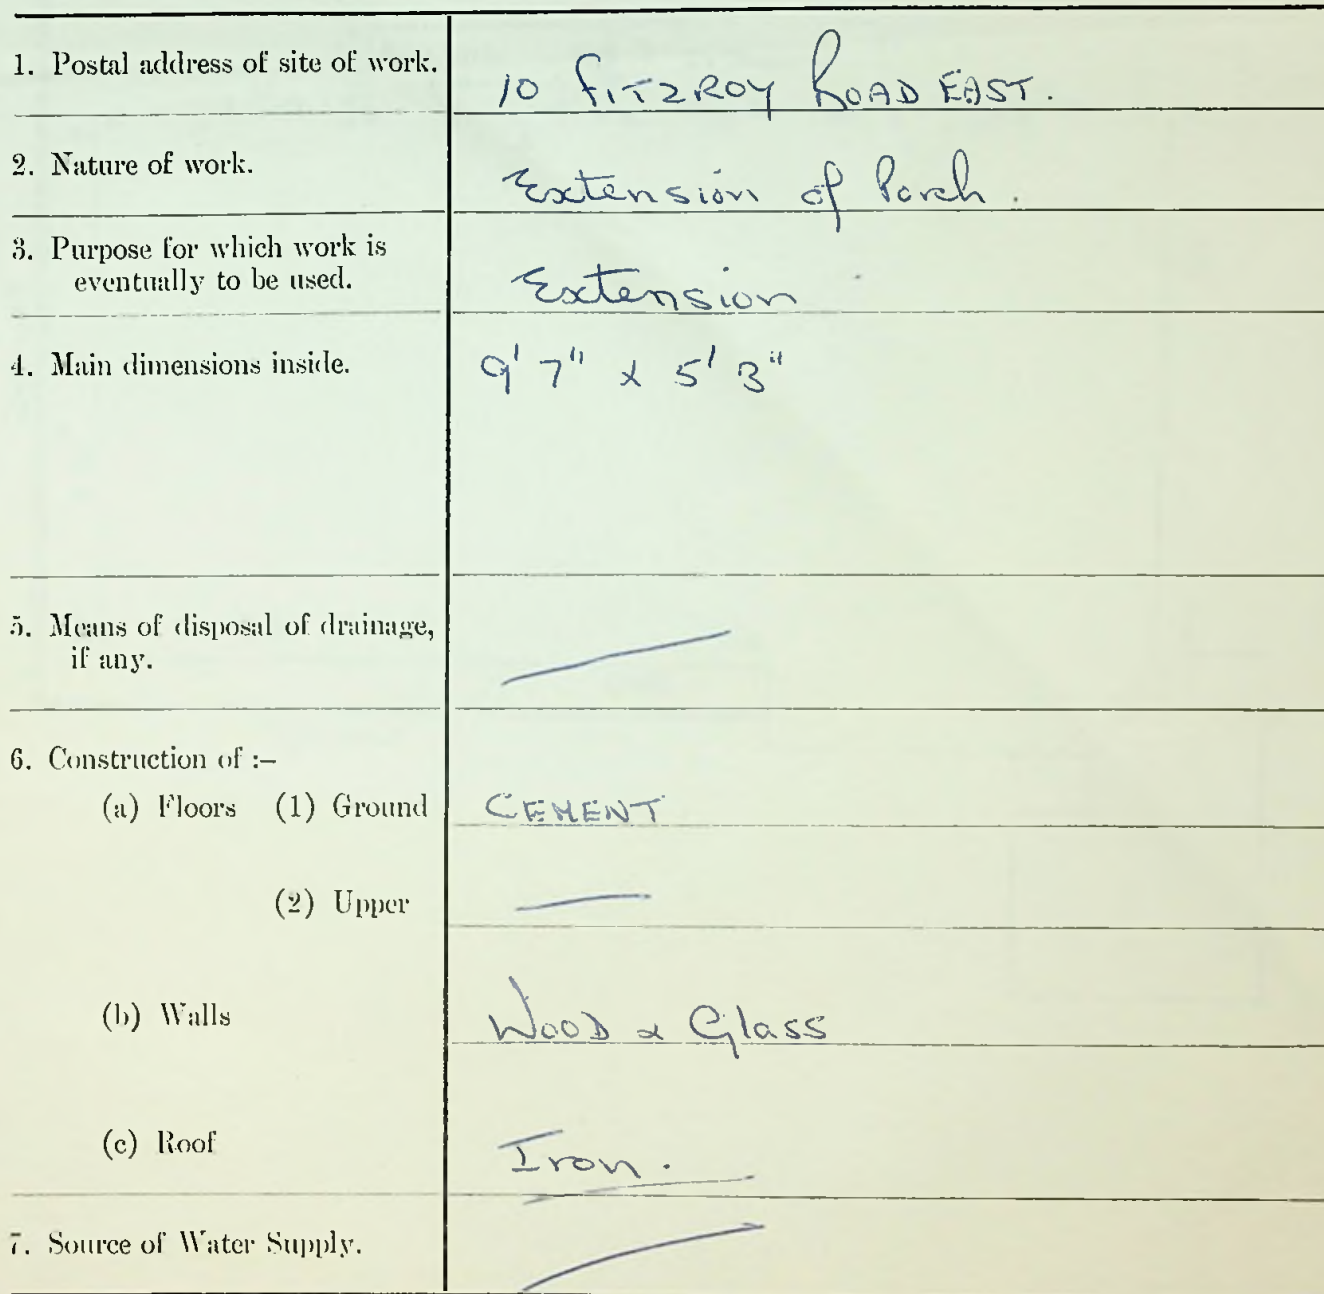 1. Postal address of site of work.
10 FITZROY ROAD EAST.
2. Nature of work.
Extension of Porch.
3. Purpose for which work is
eventually to be used.
Extension
4. Main dimensions inside.
9' 7" x 5' 3"
5. Means of disposal of drainage,
if any.
6. Construction of :–
(a) Floors (1) Ground
CEMENT
(2) Upper
(b) Walls
WOOD & Glass
(c) Roof
Iron.
7. Source of Water Supply.